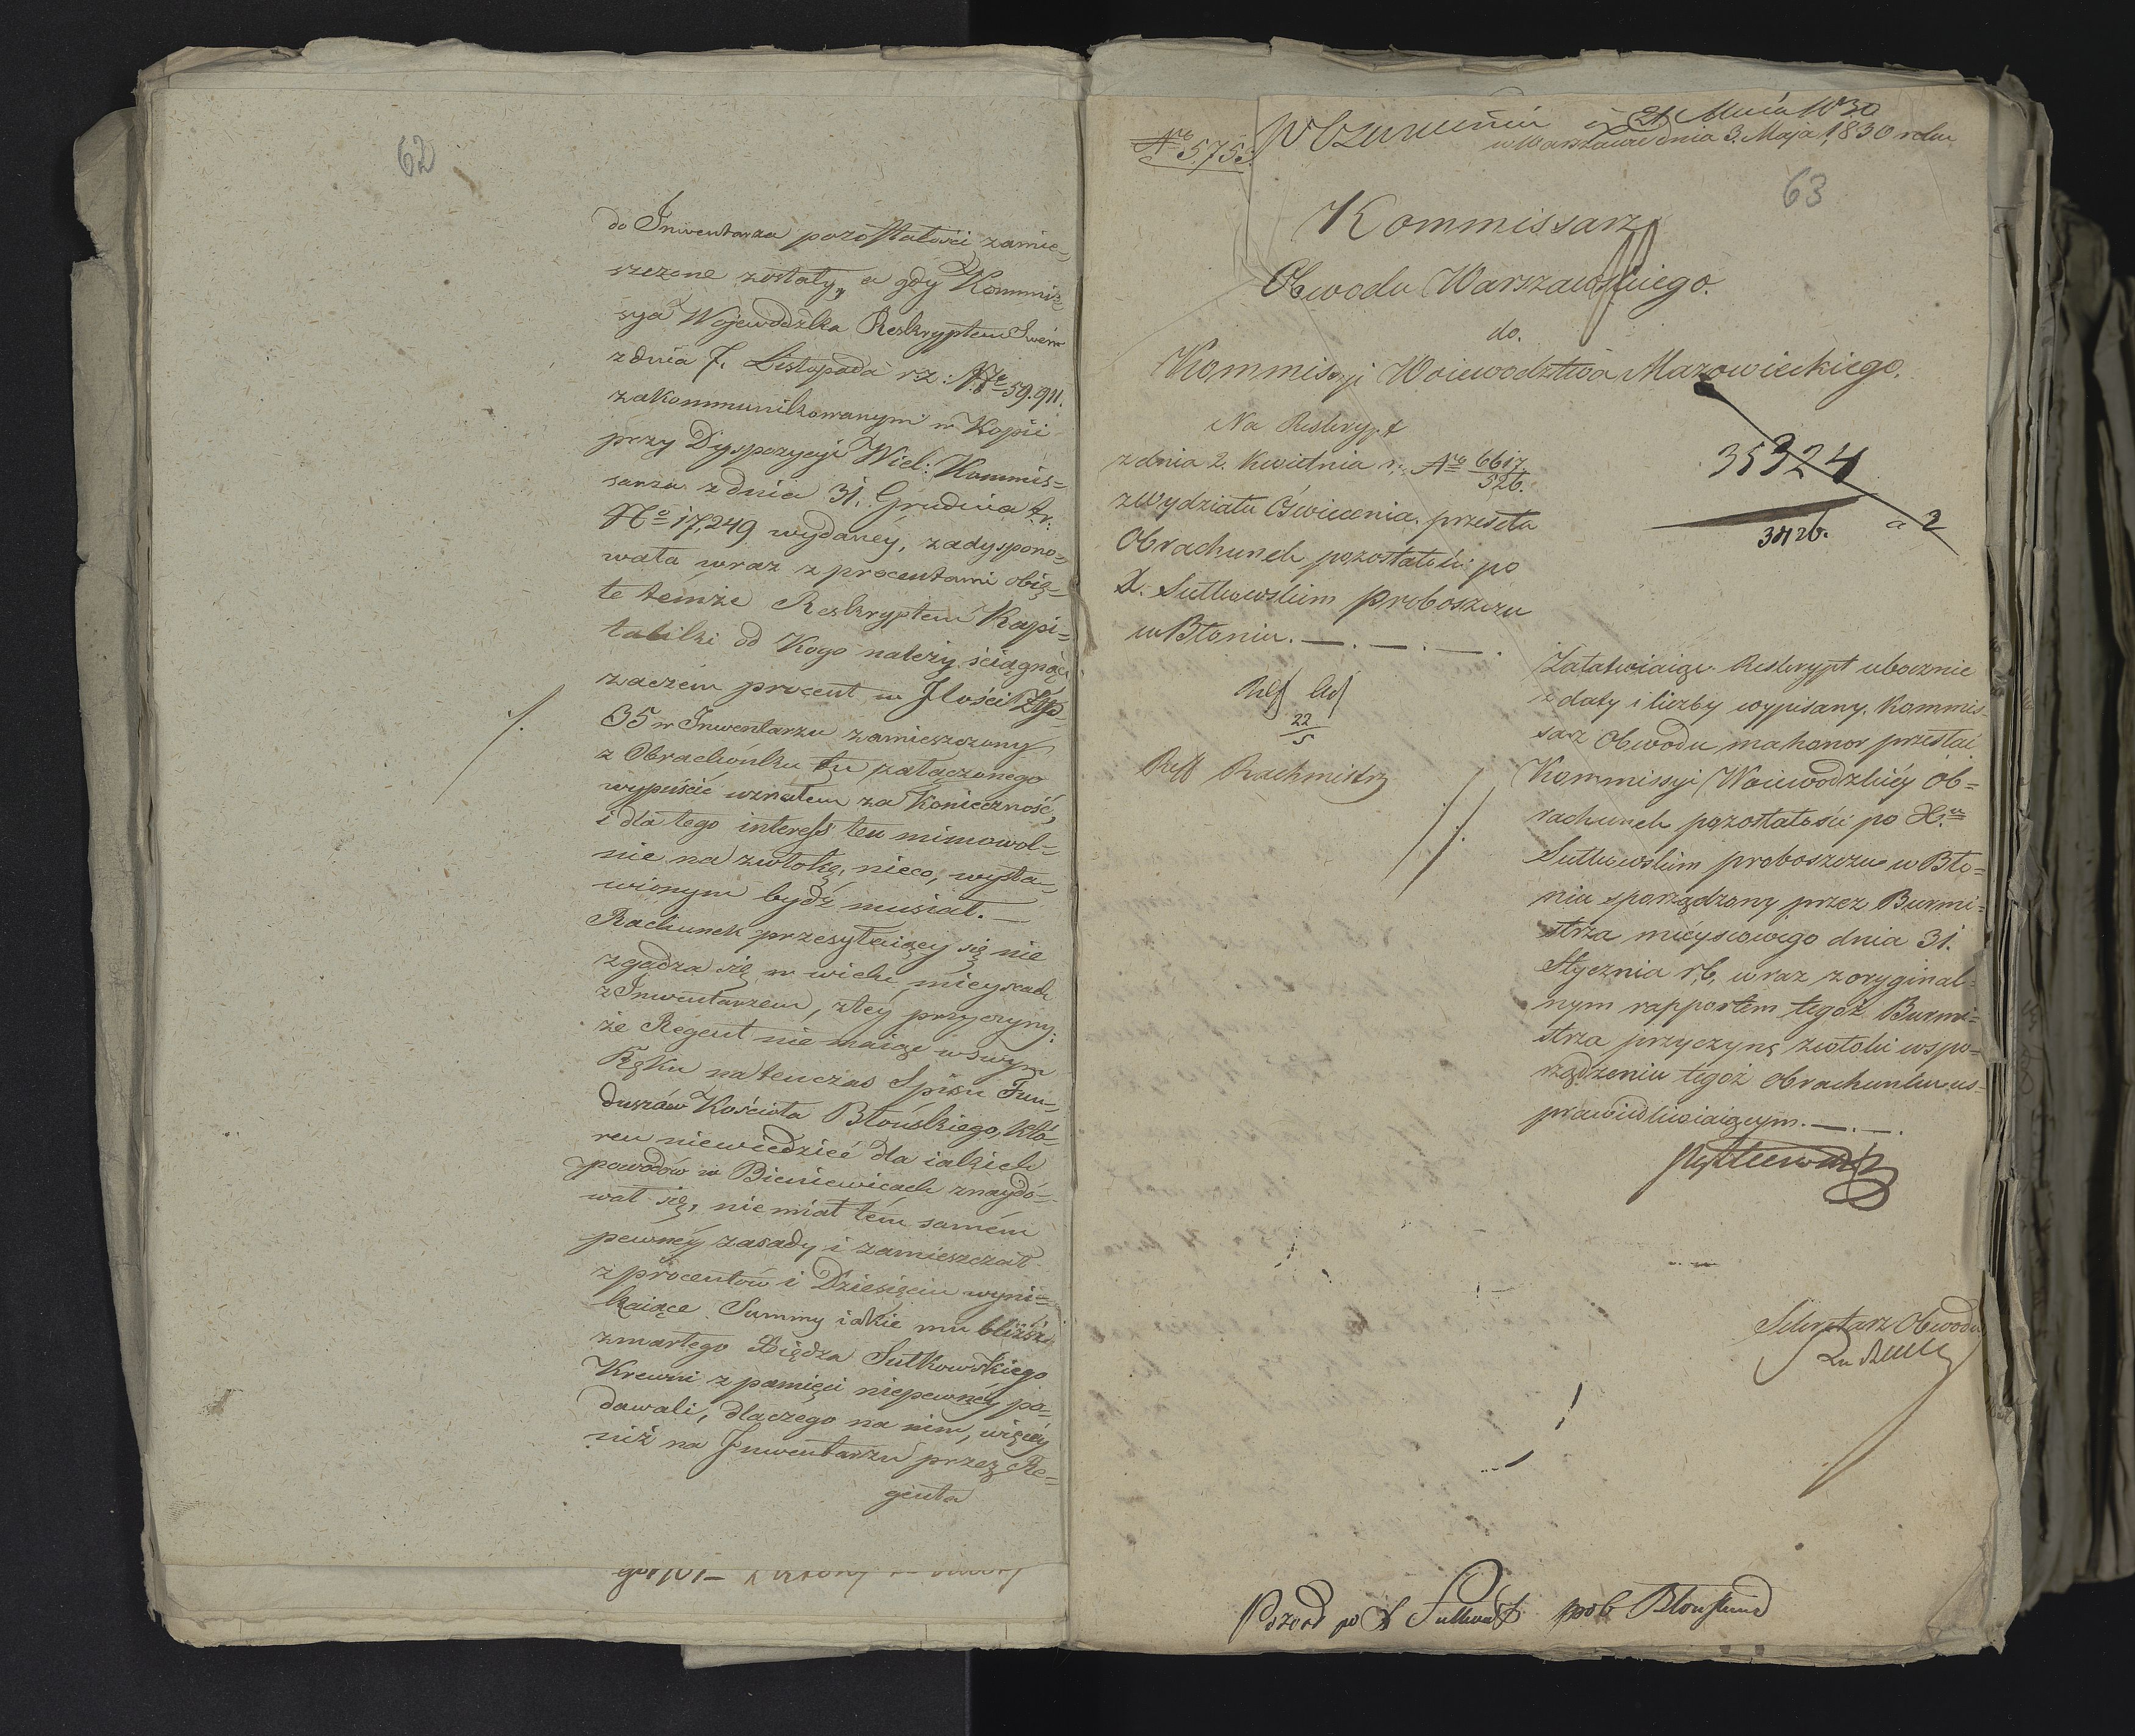 62
do Inwentarza pozostałości zamie-
szczone zostały, a gdy Kommis-
sya Wojewódzka Reskryptem Swéim
z dnia 7. Listopada r. z: No 59.911.
zakommunikowanym w Kopii
przy Dyspozycyi Wiel: Kommis-
sarza z dnia 31. Grudnia t.r.
No 17,249 wydanéy, zadyspono-
wała wraz z procentami obię-
te témże Reskryptem Kapi-
taliki od Kogo należy ściągnąć
zaczém procent w Ilości Złp
35 w Inwentarzu zamieszczony
z Obrachónku tu załączonego
wypuścić uznałem za Konieczność,
i dla tego interess ten mimowol-
nie na zwłokę, nieco, wysta-
wionym bydź musiał. —
Rachunek przesyłaiący się nie
zgadza się w wielu mieyscach
z Inwentarzem, z téy przyczyny:
że Regent nie maiąc w swym
Ręku natenczas Spisu Fun-
duszów Kościoła Błońskiego, któ-
ren niewiedzieć dla iakich
powodów w Bieniewicach znaydó-
wał się, nie miał tém samém
pewnéy zasady i zamieszczał
z procentów i Dziesięcin wyni-
kaiące Summy iakie mu bliżsi
zmarłego Xiędza Sutkowskiego
Krewni z pamięci niepewnéy po-
dawali, dlaczego na nim, więcéy
niż na Inwentarzu przez Re-
genta
No 5755.
21 Maia 1830
w Warszawie dnia 3. Maja 1830 roku
63
Kommissarz
Obwodu Warszawskiego.
do.
Kommissyi Woiewodztwa Mazowieckiego.
Na Reskrypt
z dnia 2. Kwietnia r. No 6617/526.
z Wydziału Oświecenia. przesyła
Obrachunek pozostałości po
X. Sutkowskim proboszczu
w Błoniu. — . — . — .
35324
3426. a 2
22/5
Reff Rachmistrz
Załatwiaiąc Reskrypt ubocznie
z daty i liczby wypisany. Kommis-
sarz Obwodu ma honor przesłać
Kommissyi Woiewodzkiéy Ob-
rachunek pozostałości po X.
Sutkowskim proboszczu w Bło-
niu sporządzony przez Burmi-
strza mieyscowego dnia 31.
Stycznia r. b. wraz z oryginal-
nym rapportem tegoż Burmi-
strza przyczynę zwłoki w spo-
rządzeniu tegoż Obrachunku us-
prawiedliwiaiącym. — . — .
Sekretarz Obwodu